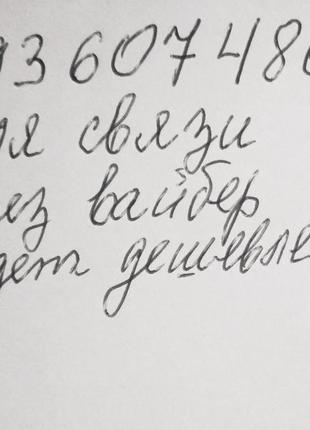 93607480
ля связи
ез вайбер
дет дешевле